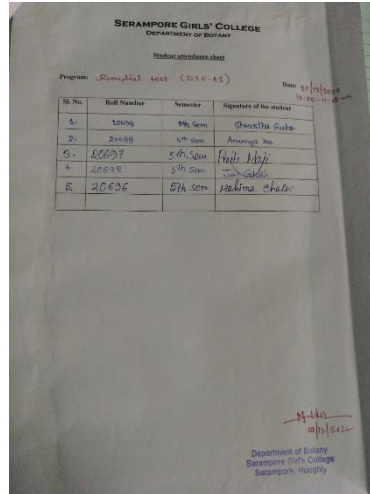 SERAMPORE GIRLS' COLLEGE
DEPARTMENT OF BOTANY
Student attendance sheet
Program: Remedial test (DSE-A1)
Date: 20/12/2022
Sl. No. Roll Number Semester Signature of the student
1. 20694 5th Sem
2. 20688 5th Sem
3. 20697 5th Sem Priti Maji
4. 20692 5th Sem
5. 20696 5th sem Mahima
Department of Botany
Serampore Girl's College
Serampore, Hooghly